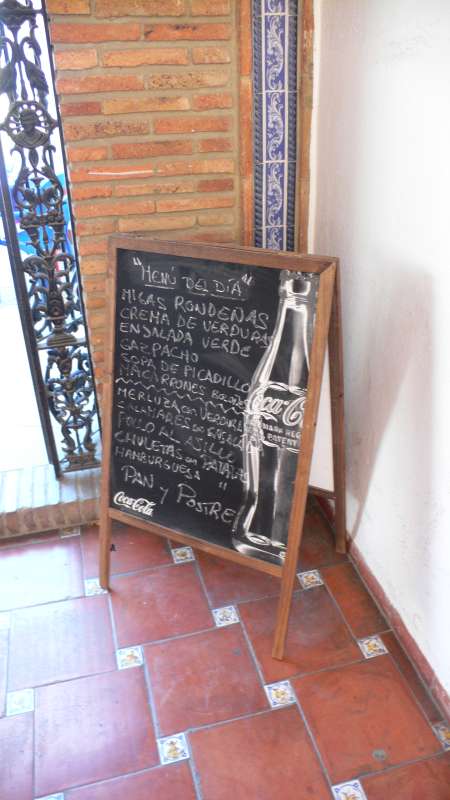 "MENÚ DEL DÍA"
MIGAS RONDEÑAS
CREMA DE VERDURAS
ENSALADA VERDE
GAZPACHO
SOPA DE PICADILLO
MACARRONES
MERLUZA CON VERDURA
CALAMARES CON ENSALADA
POLLO AL AJILLO
CHULETAS CON PATATAS
HAMBURGUESA "
PAN Y POSTRE
Coca-Cola
Coca-C
PATENT